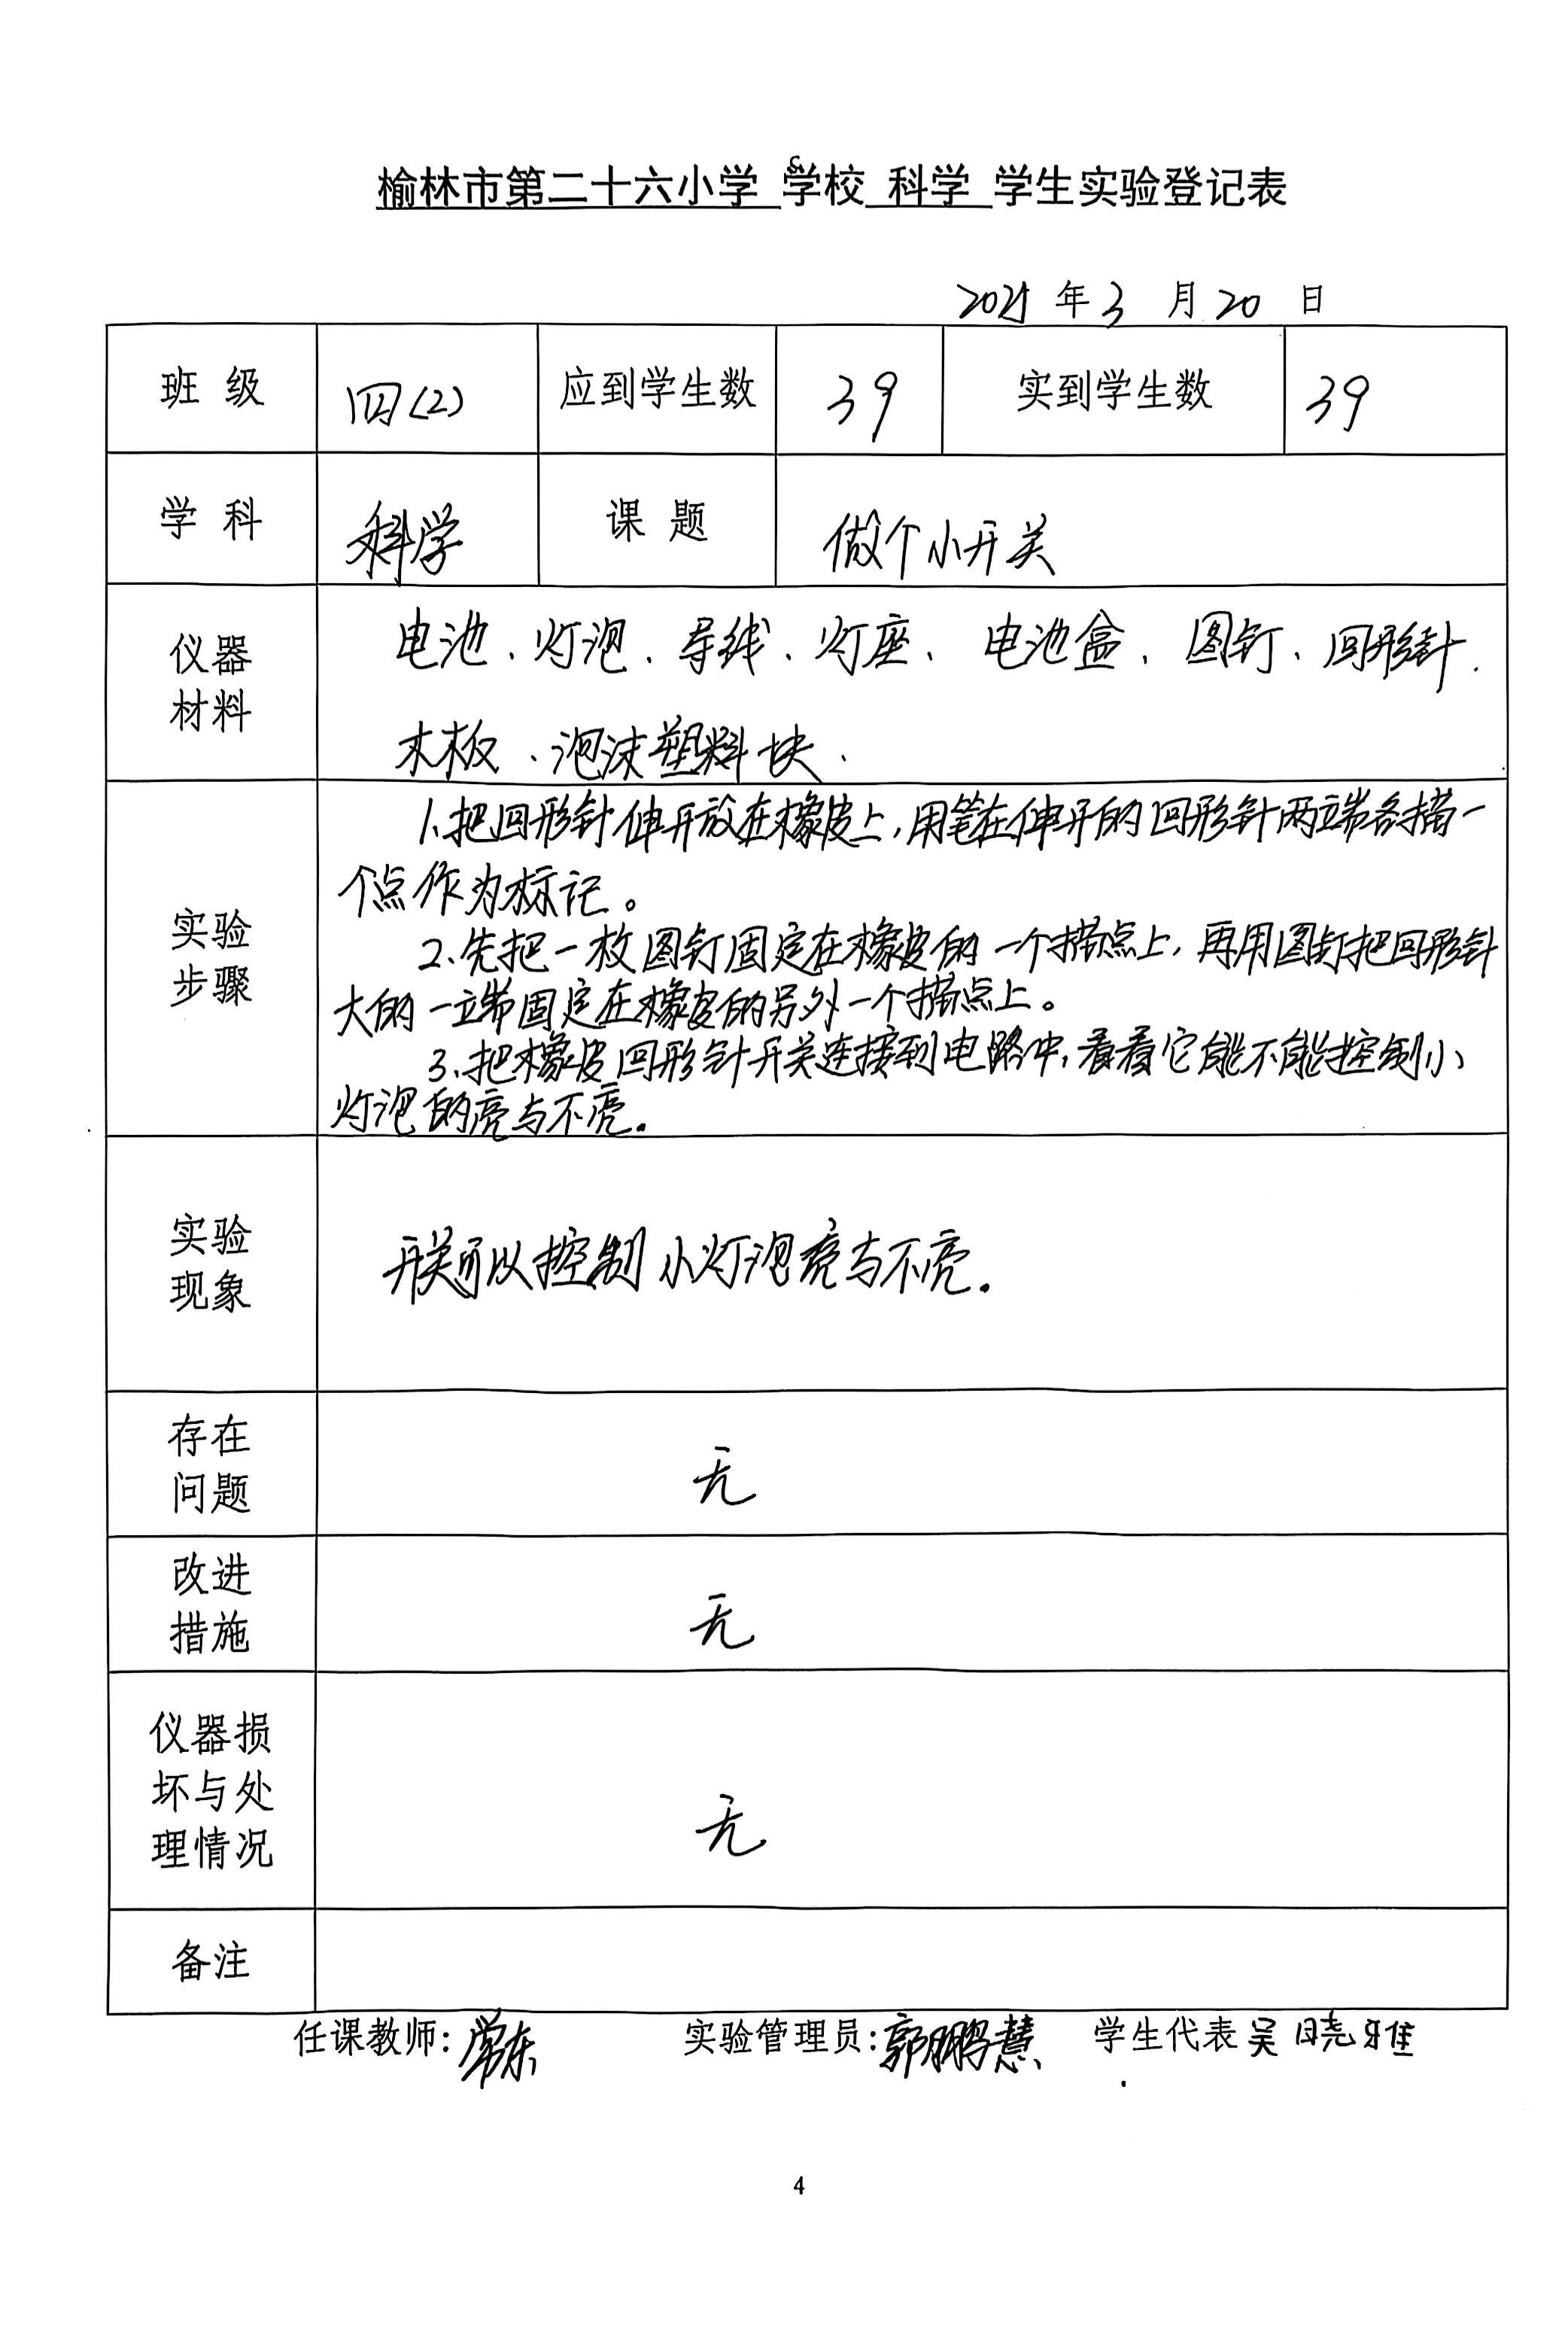 榆林市第二十六小学 学校 科学 学生实验登记表
2021 年 3 月 20 日
班 级 四(2) 应到学生数 39 实到学生数 39
学 科 科学 课 题 做个小开关
仪器材料 电池、灯泡、导线、灯座、电池盒、图钉、回形针.
木板、泡沫塑料块.
实验步骤 1.把回形针伸开放在橡皮上,用笔在伸开的回形针两端各描一
个点作为标记。
2.先把一枚图钉固定在橡皮的一个描点上,再用图钉把回形针
大的一端固定在橡皮的另外一个描点上。
3.把橡皮回形针开关连接到电路中,看看它能不能控制小
灯泡的亮与不亮.
实验现象 开关可以控制小灯泡亮与不亮.
存在问题 无
改进措施 无
仪器损坏与处理情况 无
备注
任课教师: 实验管理员:郭鹏慧 学生代表 吴晓雅
4